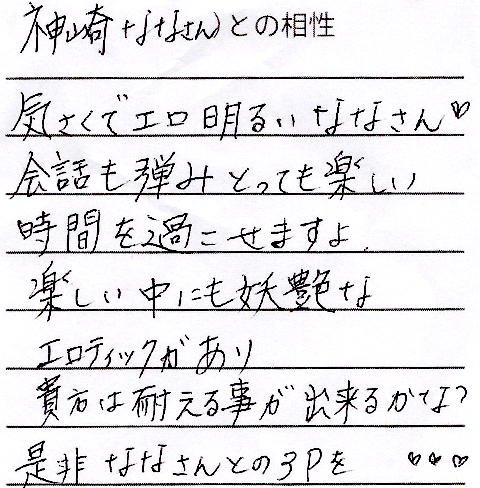 神崎ななさん)との相性
気さくでエロ明るいななさん♡
会話も弾みとっても楽しい
時間を過ごせますよ.
楽しい中にも妖艶な
エロティックがあり
貴方は耐える事が出来るかな?
是非ななさんとの3Pを ♡♡♡